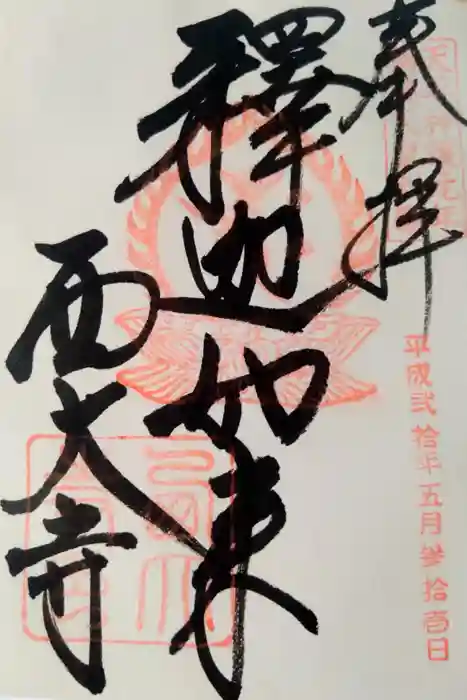 奉拝
平成弐拾年五月参拾壱日
釋迦如来
西大寺